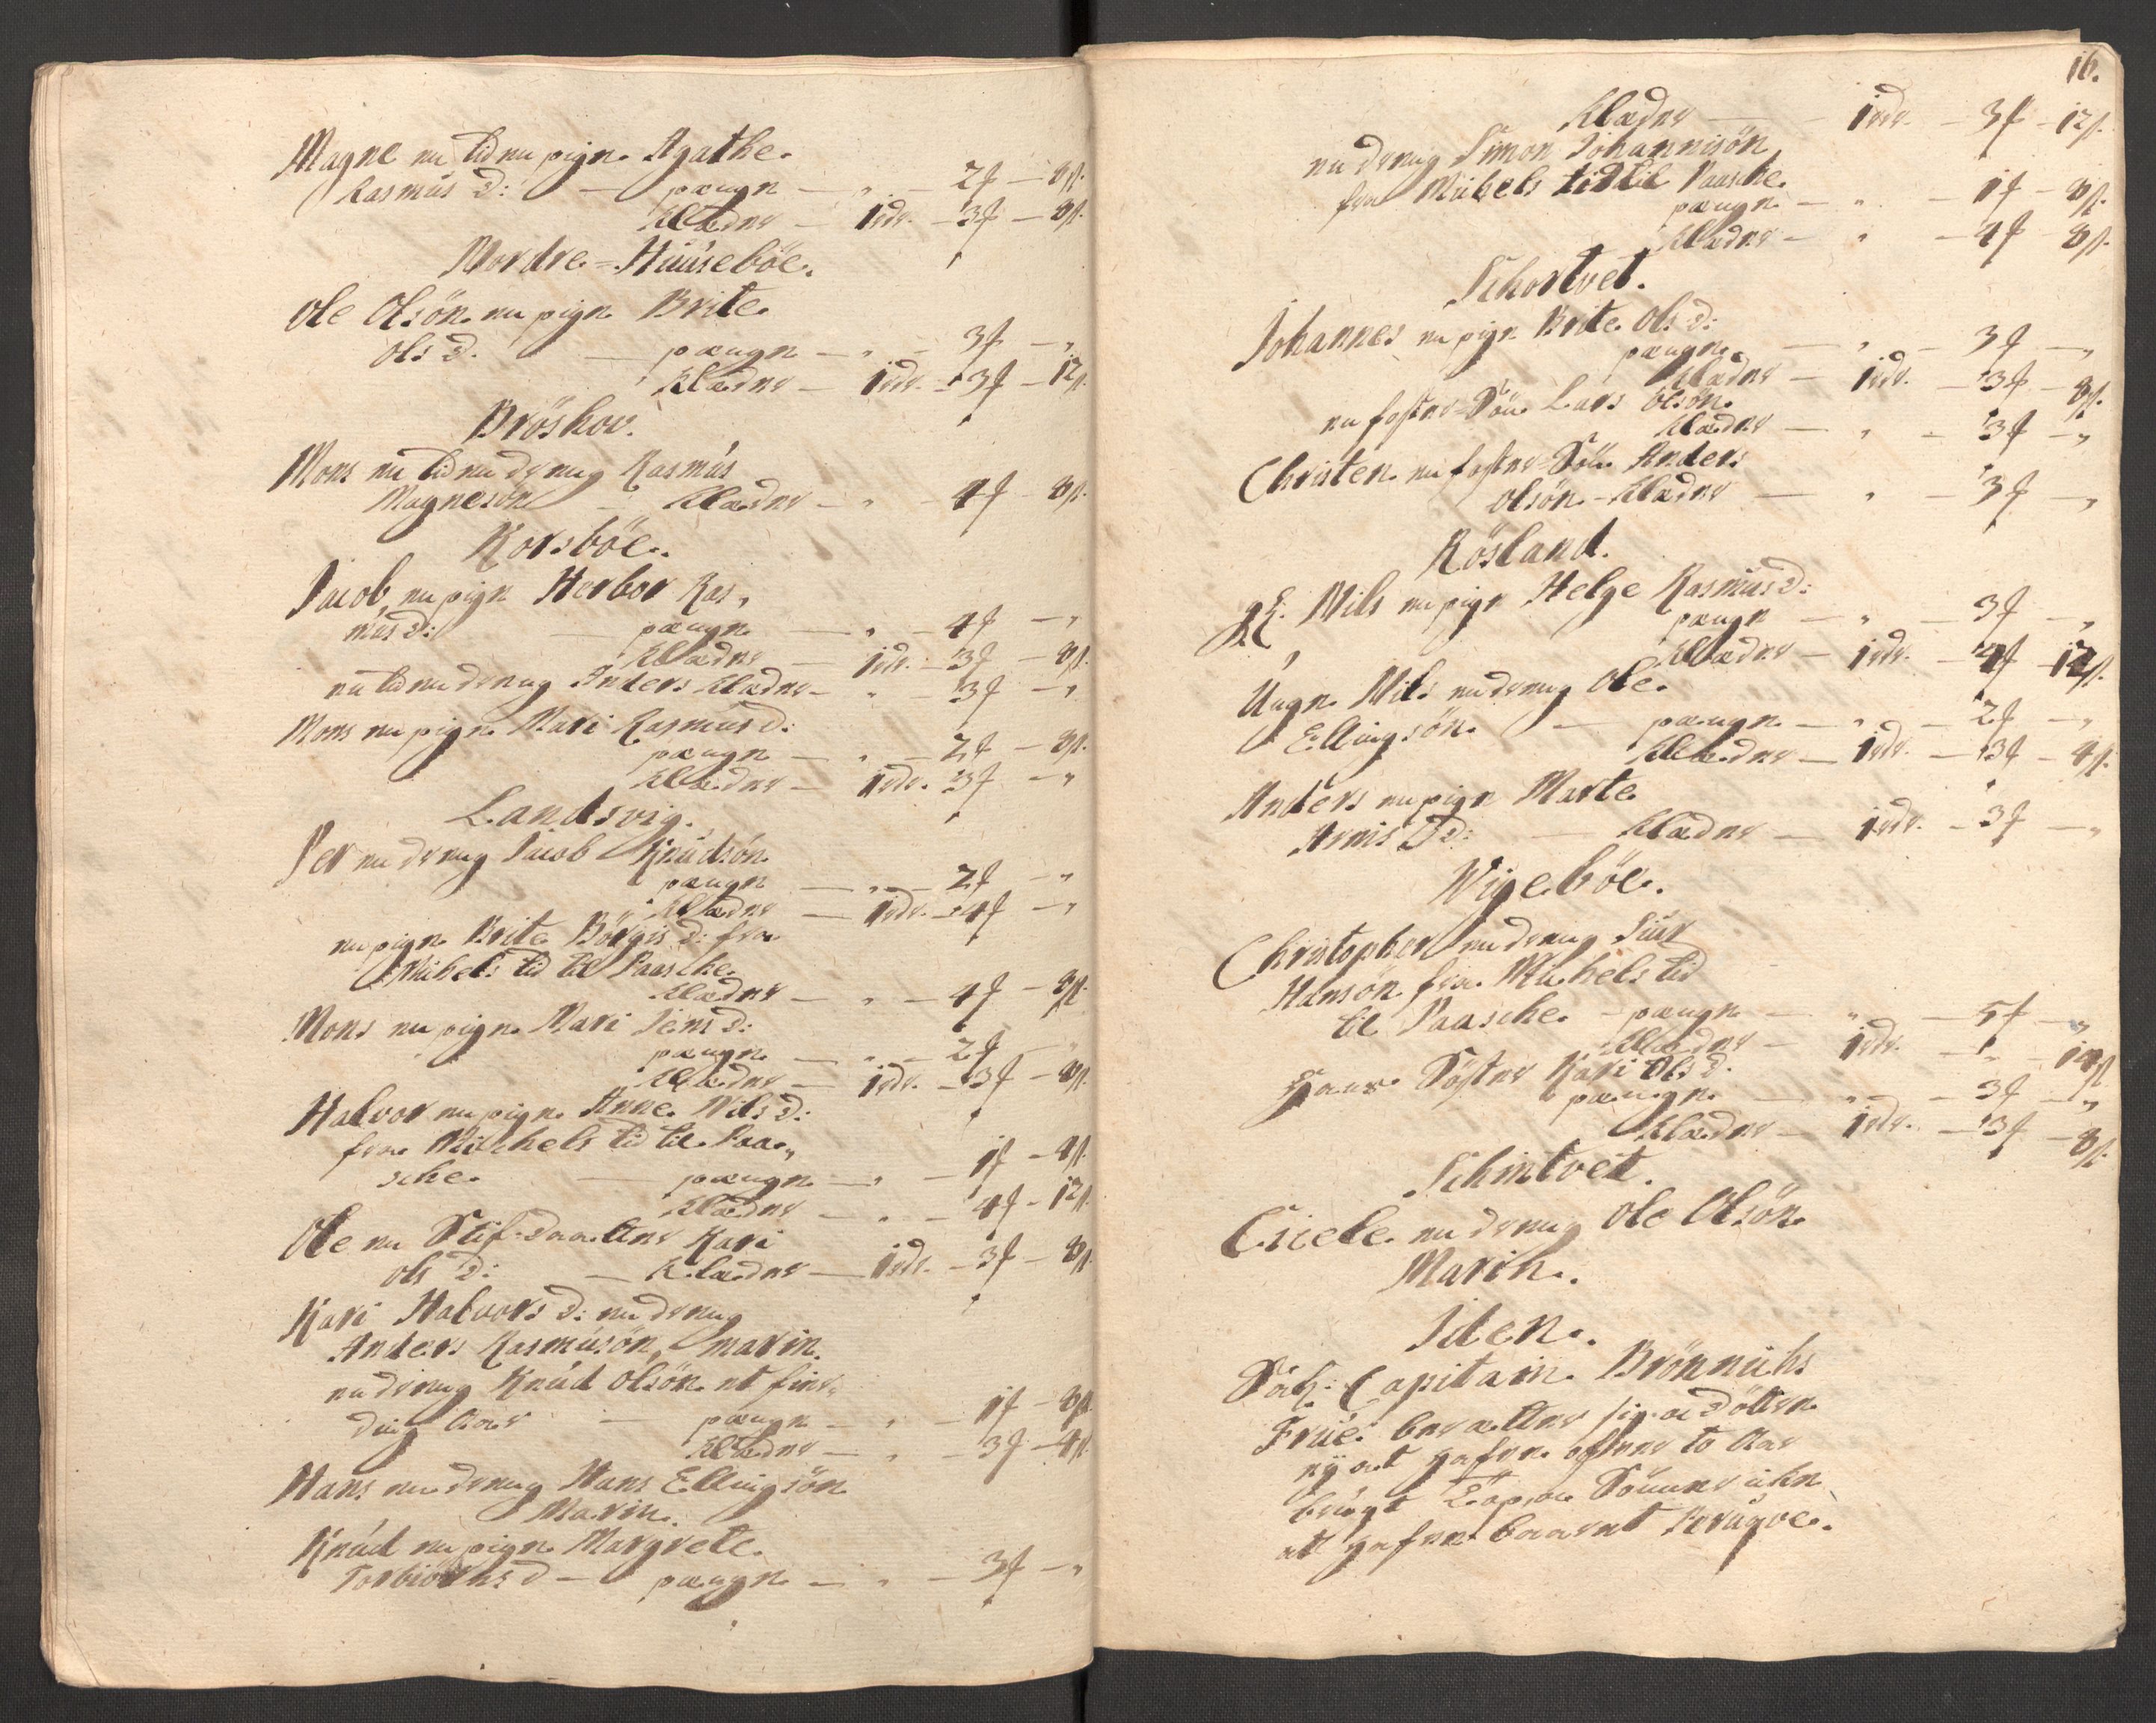 Magne en tid en pige Agathe
Rasmus d: — penge — " — 2 f — 8 s.
Klæder — 1 rdr. — 3 f — 8 s.
Nordre = Huusebøe.
Ole Olsøn en pige Brite
Ols d. — penge — " — 3 f — "
Klæder — 1 rdr. — 3 f — 12 s.
Brøskou.
Mons en tid en dreng Rasmus
Magnesøn — Klæder — " — 4 f — 8 s.
Korsbøe.
Jacob en pige Herbor Ras„
mus d: — penge — " — 4 f — "
Klæder — 1 rdr. — 3 f — 8 s.
en tid en dreng Anders Klæder — " 3 f — "
Mons en pige Mari Rasmus d:
penge — " — 2 f — 8 s.
Klæder — 1 rdr. 3 f — "
Landsvig.
Per en dreng Jacob Knudsøn
penge — " — 2 f — "
Klæder — 1 rdr. — 4 f — "
en pige Brite Børgis d: fra
Michels tid til Paasche
Klæder — " — 4 f — 8 s.
Mons en pige Mari Jens d:
penge — " — 2 f — "
Klæder — 1 rdr. — 3 f — 8 s.
Halvor en pige Anne Nils d:
fra Michels tid til Paa„
sche — penge — " — 1 f — 8 s.
Klæder — " — 4 f — 12 s.
Ole en Stif-daatter Kari
Ols d: — Klæder — 1 rdr. — 3 f — 8 s.
Kari Halvors d: en dreng
Anders Rasmusøn, marin.
en dreng Knud Olsøn et fier„
ding Aar — penge — " — 1 f — 8 s.
Klæder — " — 3 f — 4 s.
Hans en dreng Hans Ellingsøn
Marin.
Knud en pige Margrete
Torbiørns d — penge — " — 3 f — "
16.
Klæder — 1 rdr. — 3 f — 12 s.
en dreng Simon Johannisøn
fra Michels tid til Paasche
penge — " — 1 f — 8 s.
Klæder — " — 4 f — 8 s.
Schortvet.
Johannes en pige Brite Ols d:
penge — " — 3 f — "
Klæder — 1 rdr. — 3 f — 8 s.
en foster-Søn Lars Olsøn
Klæder — " — 3 f — "
Christen en foster-Søn Anders
Olsøn — Klæder — " — 3 f — "
Røsland.
gl. Nils en pige Helge Rasmus d:
penge — " — 3 f — "
Klæder — 1 rdr. — 4 f — 12 s.
Unge Nils en dreng Ole
Ellingsøn — penge — " — 2 f — "
Klæder — 1 rdr. — 3 f — 4 s.
Anders en pige Marte
Arnis d: — Klæder — 1 rdr. — 3 f — "
Wigebøe.
Christopher en dreng Siur
Hansøn fra Michels tid
til Paasche — penge — " — 5 f — "
Klæder — 1 rdr. — " — 10 s.
Hans Søster Kari Ols d.
penge — " — 3 f — "
Klæder — 1 rdr. — 3 f — 8 s.
Schintvet.
Ciele en dreng Ole Olsøn
Marin.
Iden.
Sal: Capitain Brønnichs
Frue beretter sig a døttre
ey at hafve eftter to Aar
brugt Dag, og Sønner iche
at hafve baaret Peruqve.